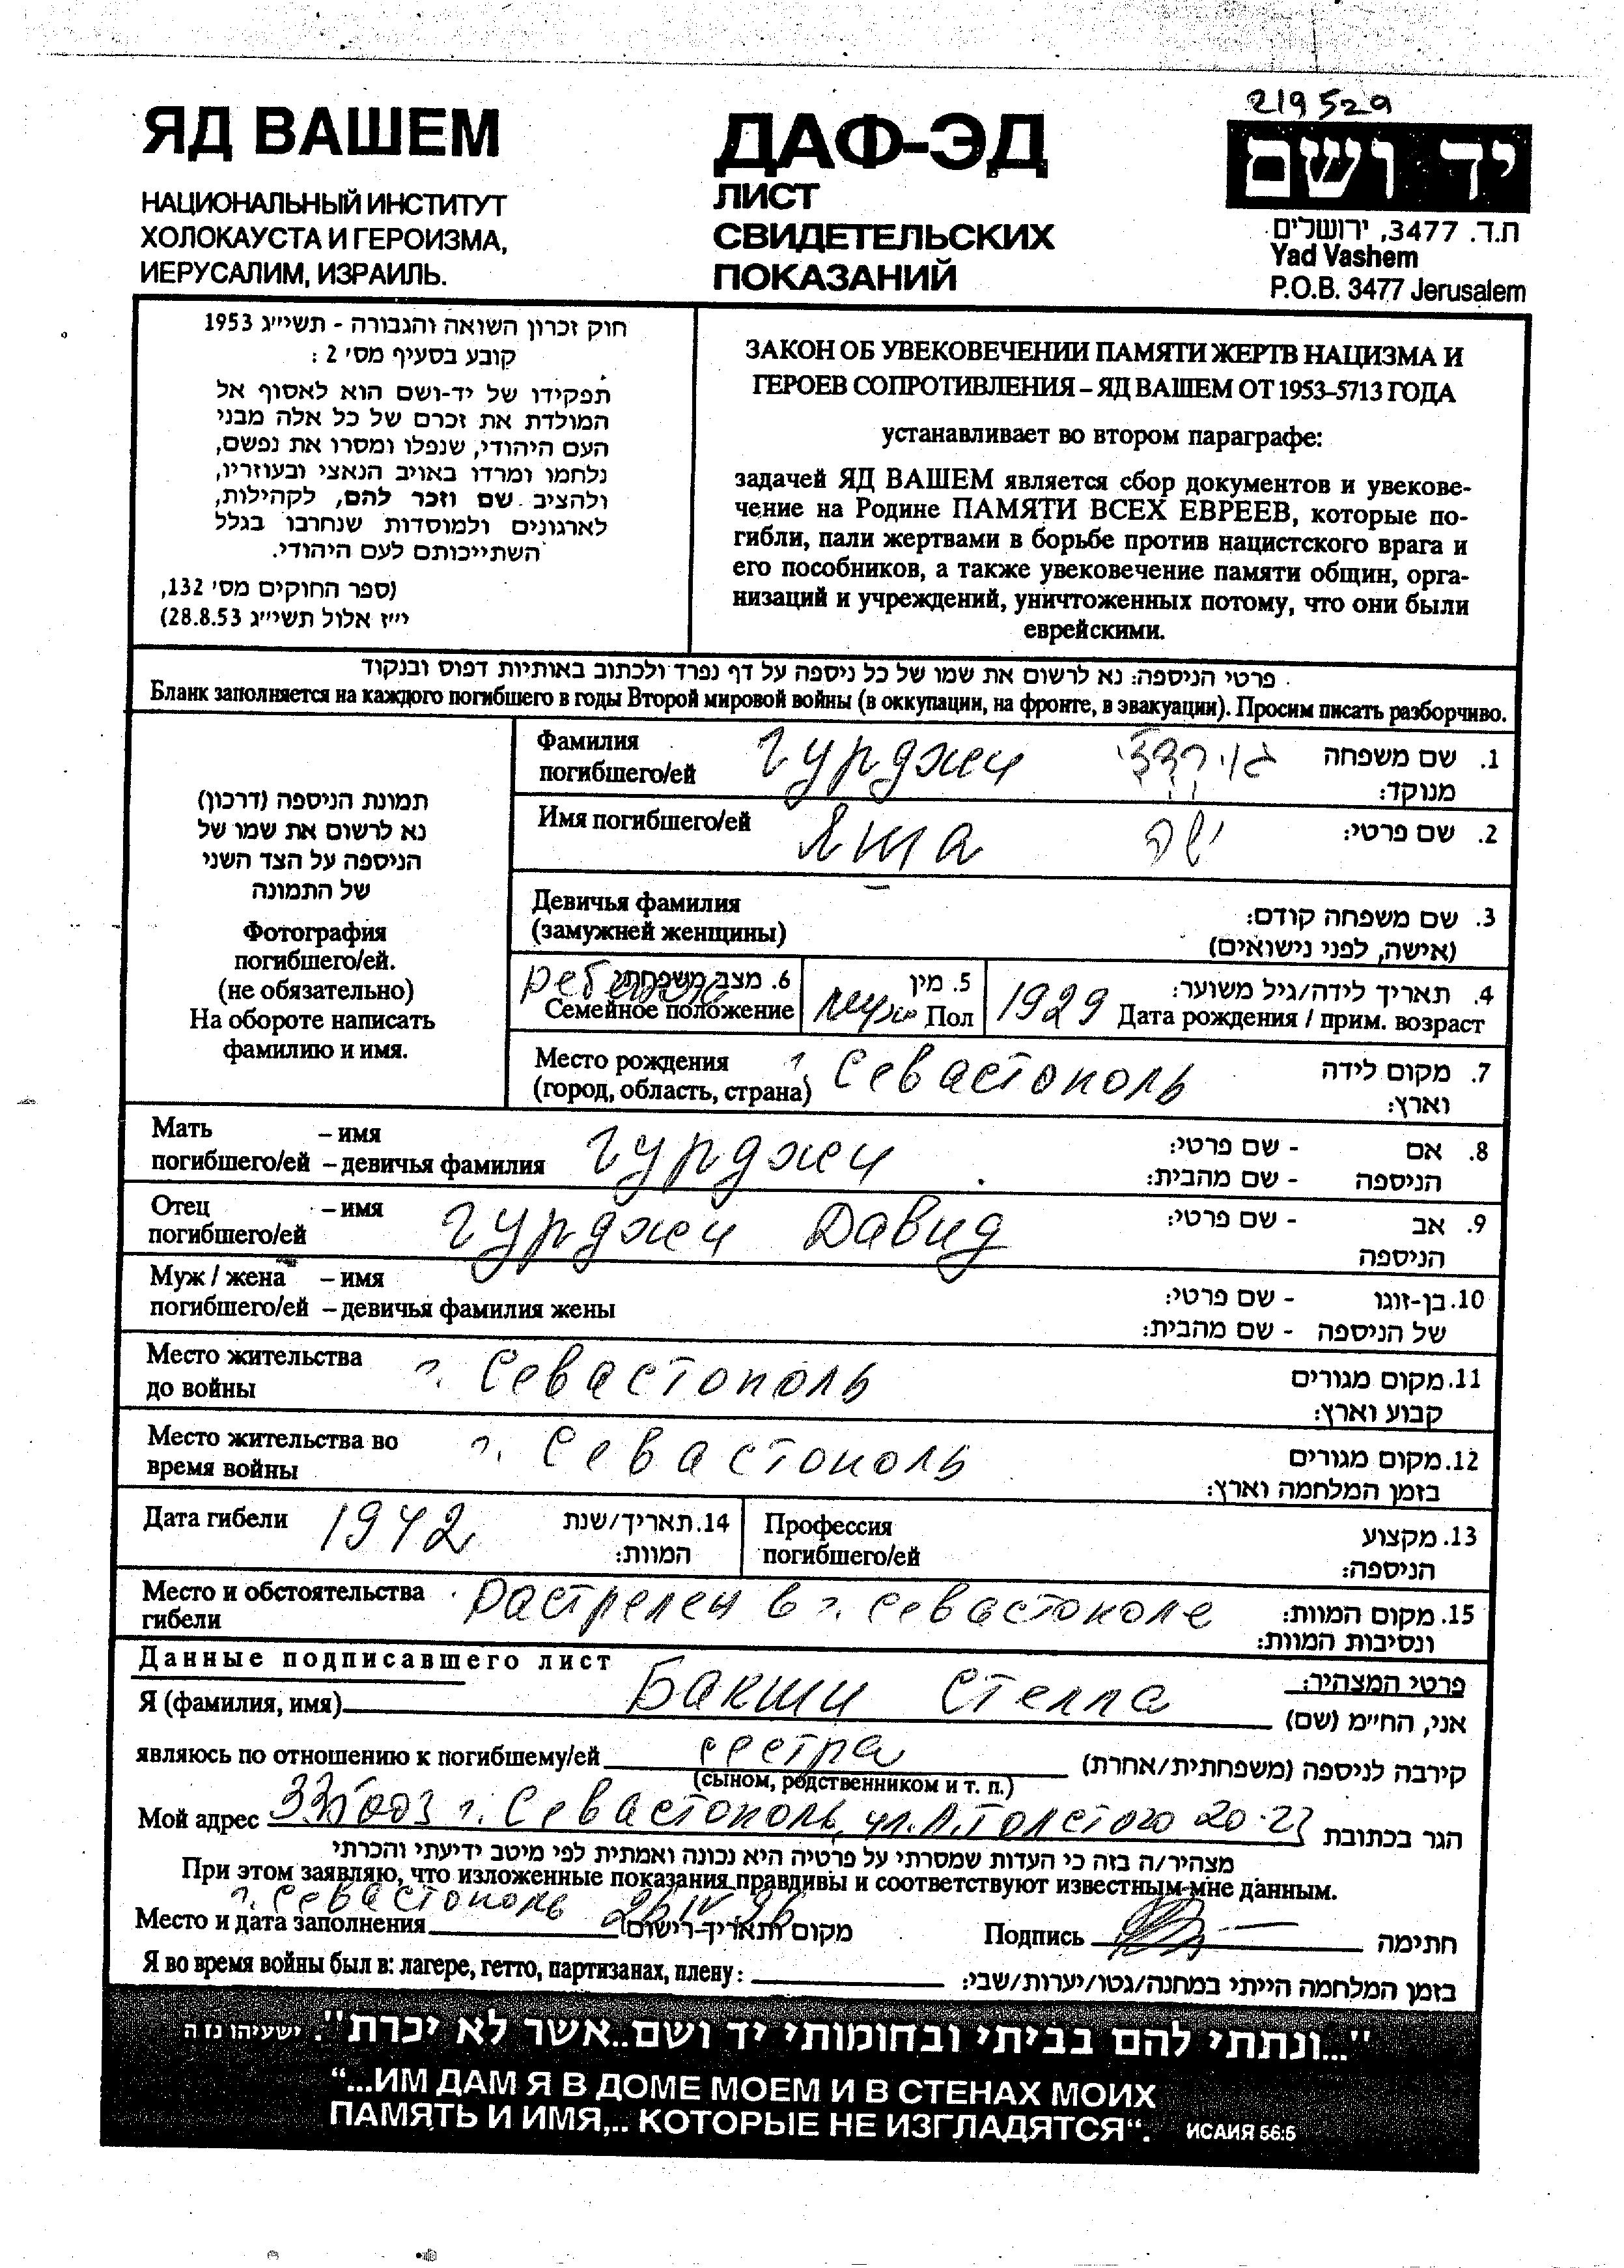 219529
ЯД ВАШЕМ
НАЦИОНАЛЬНЫЙ ИНСТИТУТ
ХОЛОКАУСТА И ГЕРОИЗМА,
ИЕРУСАЛИМ, ИЗРАИЛЬ.
ДАФ-ЭД
ЛИСТ
СВИДЕТЕЛЬСКИХ
ПОКАЗАНИЙ
יד ושם
ת.ד. 3477, ירושלים
Yad Vashem
P.O.B. 3477 Jerusalem
חוק זכרון השואה והגבורה - תשי״ג 1953
קובע בסעיף מס׳ 2 :
תפקידו של יד-ושם הוא לאסוף אל
המולדת את זכרם של כל אלה מבני
העם היהודי, שנפלו ומסרו את נפשם,
נלחמו ומרדו באויב הנאצי ובעוזריו,
ולהציב שם וזכר להם, לקהילות,
לארגונים ולמוסדות שנחרבו בגלל
השתייכותם לעם היהודי.
(ספר החוקים מס׳ 132,
י״ז אלול תשי״ג 28.8.53)
ЗАКОН ОБ УВЕКОВЕЧЕНИИ ПАМЯТИ ЖЕРТВ НАЦИЗМА И
ГЕРОЕВ СОПРОТИВЛЕНИЯ – ЯД ВАШЕМ ОТ 1953–5713 ГОДА
устанавливает во втором параграфе:
задачей ЯД ВАШЕМ является сбор документов и увекове-
чение на Родине ПАМЯТИ ВСЕХ ЕВРЕЕВ, которые по-
гибли, пали жертвами в борьбе против нацистского врага и
его пособников, а также увековечение памяти общин, орга-
низаций и учреждений, уничтоженных потому, что они были
еврейскими.
פרטי הניספה: נא לרשום את שמו של כל ניספה על דף נפרד ולכתוב באותיות דפוס ובנקוד
Бланк заполняется на каждого погибшего в годы Второй мировой войны (в оккупации, на фронте, в эвакуации). Просим писать разборчиво.
תמונת הניספה (דרכון)
נא לרשום את שמו של
הניספה על הצד השני
של התמונה
Фотография
погибшего/ей.
(не обязательно)
На обороте написать
фамилию и имя.
Фамилия Гурджи 1. שם משפחה
погибшего/ей מנוקד:
Имя погибшего/ей Яша ישה 2. שם פרטי:
Девичья фамилия 3. שם משפחה קודם:
(замужней женщины) (אישה, לפני נישואים)
ребенок 6. מצב משפחתי 5. מין 4. תאריך לידה/גיל משוער:
Семейное положение муж Пол 1929 Дата рождения / прим. возраст
Место рождения г. Севастополь 7. מקום לידה
(город, область, страна) וארץ:
Мать – имя Гурджи 8. אם - שם פרטי:
погибшего/ей – девичья фамилия הניספה - שם מהבית:
Отец – имя Гурджи Давид 9. אב - שם פרטי:
погибшего/ей הניספה
Муж / жена – имя 10. בן-זוגו - שם פרטי:
погибшего/ей – девичья фамилия жены של הניספה - שם מהבית:
Место жительства г. Севастополь 11. מקום מגורים
до войны קבוע וארץ:
Место жительства во г. Севастополь 12. מקום מגורים
время войны בזמן המלחמה וארץ:
Дата гибели 1942 14. תאריך/שנת Профессия 13. מקצוע
המוות: погибшего/ей הניספה:
Место и обстоятельства Растрелен в г. Севастополе 15. מקום המוות:
гибели ונסיבות המוות:
Данные подписавшего лист פרטי המצהיר:
Я (фамилия, имя) Бакши Стелла אני, החי״מ (שם)
являюсь по отношению к погибшему/ей сестра קירבה לניספה (משפחתית/אחרת)
(сыном, родственником и т. п.)
Мой адрес 335003 г. Севастополь, ул. Л. Толстого 20-23 הגר בכתובת
מצהיר/ה בזה כי העדות שמסרתי על פרטיה היא נכונה ואמתית לפי מיטב ידיעתי והכרתי
При этом заявляю, что изложенные показания правдивы и соответствуют известным мне данным.
г. Севастополь 26 IV 96
Место и дата заполнения מקום ותאריך רישום Подпись חתימה
Я во время войны был в: лагере, гетто, партизанах, плену: בזמן המלחמה הייתי במחנה/גטו/יערות/שבי:
"...ונתתי להם בביתי ובחומותי יד ושם..אשר לא יכרת". ישעיהו נו ה
“...ИМ ДАМ Я В ДОМЕ МОЕМ И В СТЕНАХ МОИХ
ПАМЯТЬ И ИМЯ,.. КОТОРЫЕ НЕ ИЗГЛАДЯТСЯ“. ИСАИЯ 56:5